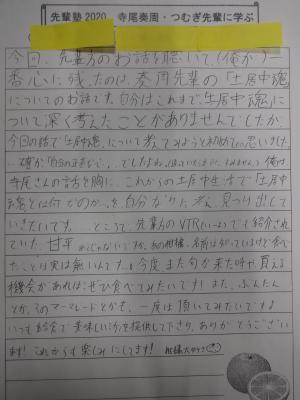 先輩塾2020 寺尾奏周・つむぎ先輩に学ぶ
今回、先輩方のお話を聴いて、(俺が)一
番心に残ったのは、奏周先輩の「土居中魂」
についてのお話です。自分はこれまで「土居中魂」に
ついて深く考えたことがありませんでしたが
今回の話で「土居中魂」について考えてみようと初めて思いました。
寺尾さんの話を胸に、これからの土居中生活で「土居中
魂とは何なのか」を自分なりに考え、見つけ出して
いきたいです。 ところで、先輩方のVTRでも紹介され
ていた 甘平 名前は知っているけど食べ
たことは実は無いんです。今度、また旬が来た時や買える
機会があれば、ぜひ食べてみたいです!また、ぶんたん
とか、そのマーマレードとかも、一度は頂いてみたいですね
いつも給食で美味しい を提供して下さり、ありがとうござい
ます! これからも楽しみにしてます! 柑橘大好き